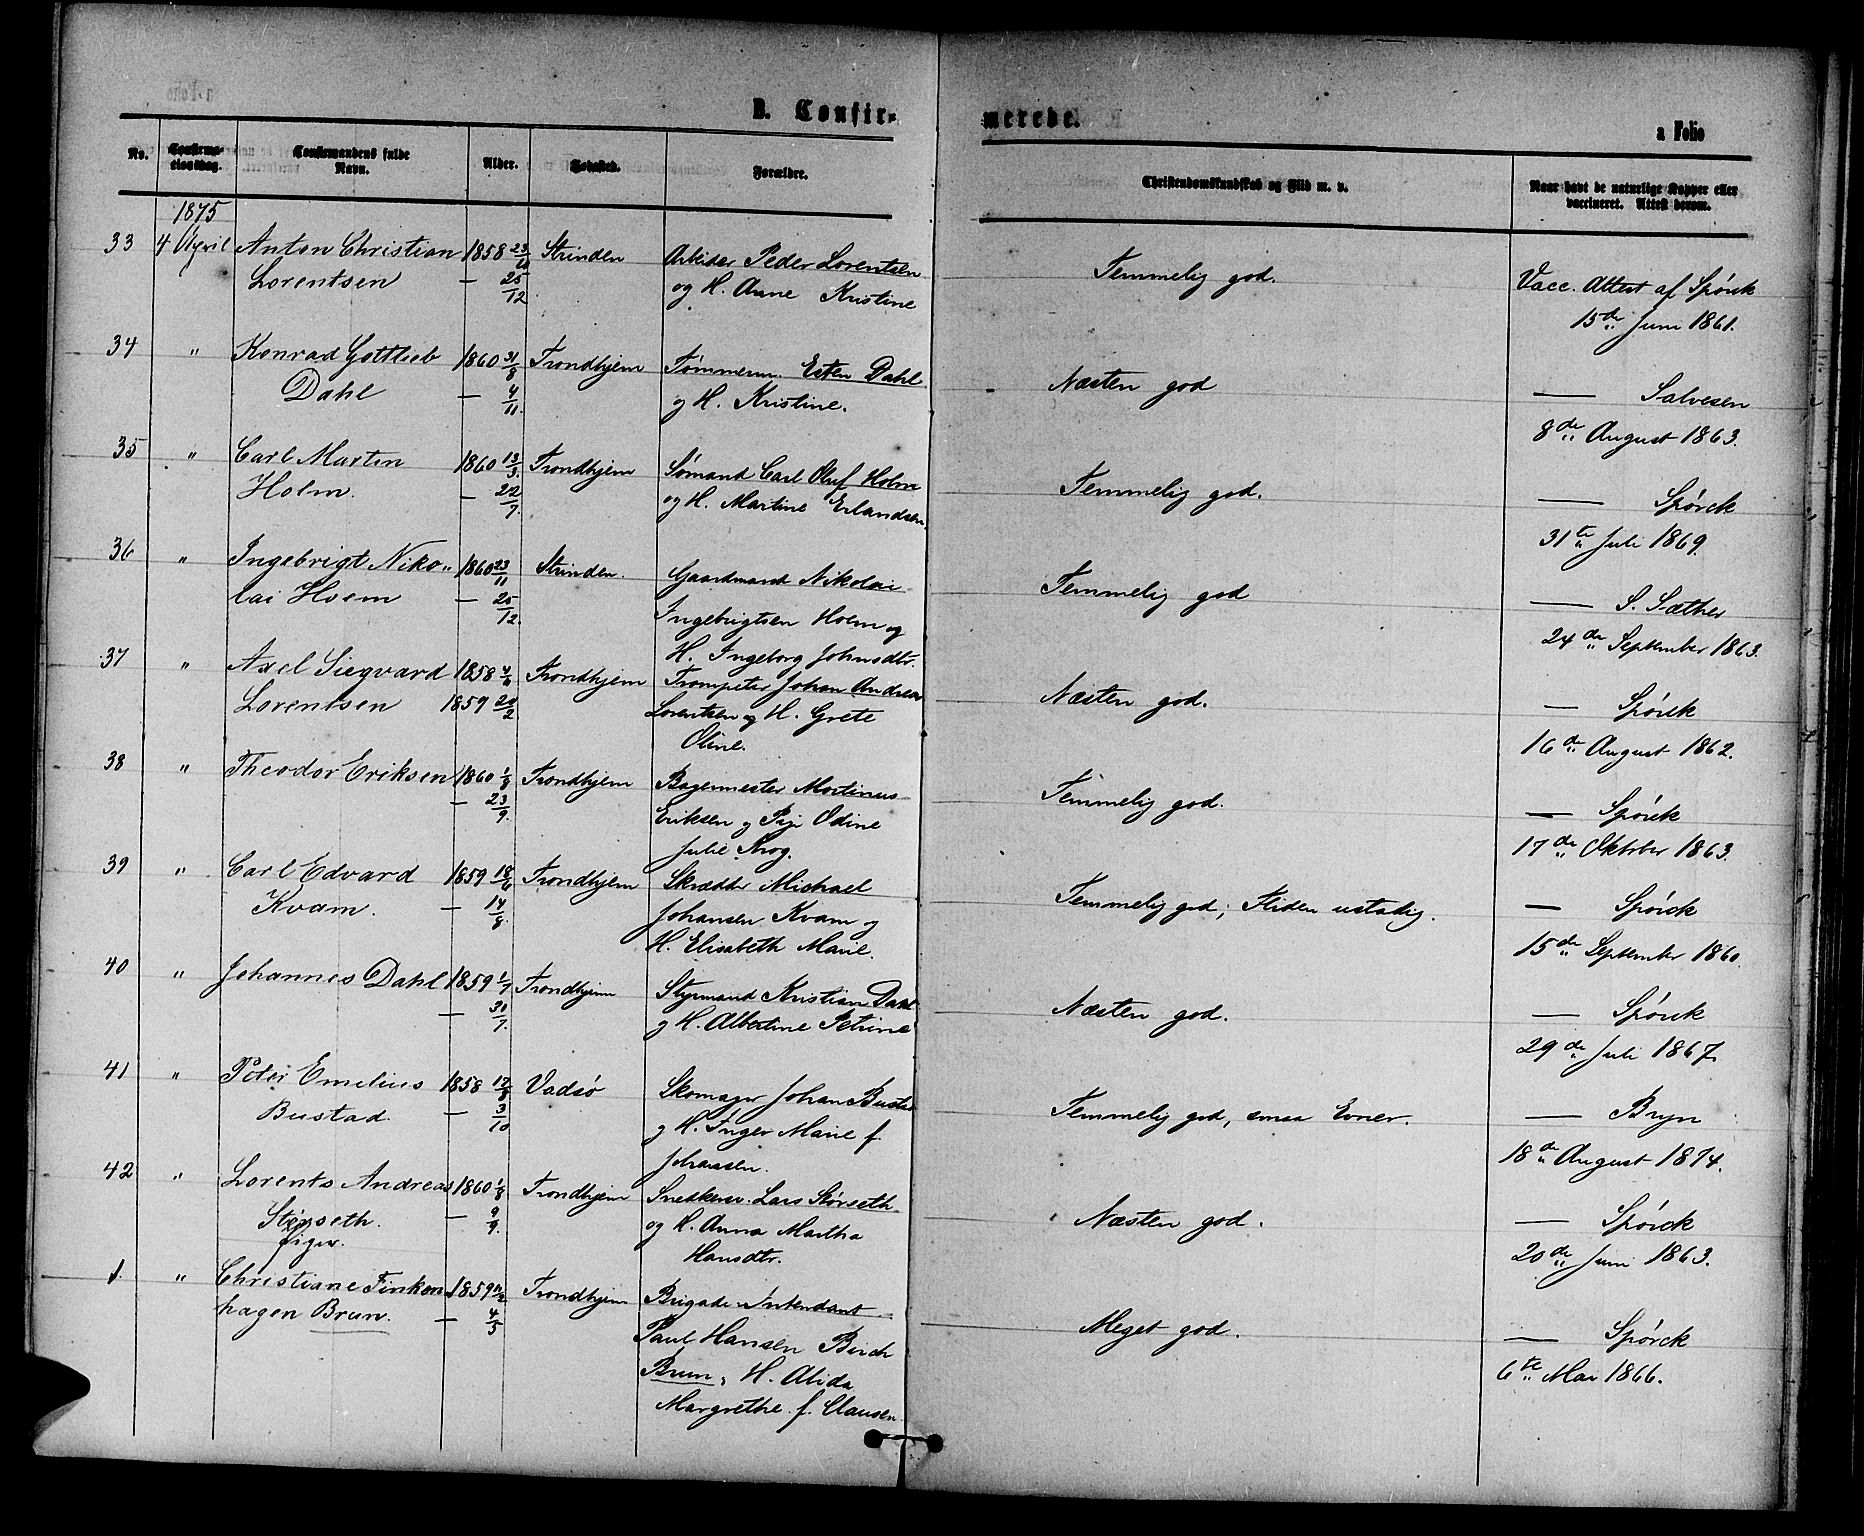 B. Confirmerede.
a Folio
No. Confirmationsdag. Confirmandens fulde Navn. Alder. Fødested. Forældre. Christendomskundskab og Flid m. v. Naar havt de naturlige Kopper eller vaccineret. Attest derom.
1875
33 4 April Anton Christian 1858 23/10 Strinden Arbeider Peder Lorentsen Temmelig god. Vacc. Attest af Spörck
Lorentsen — 25/12 og H. Anne Kristine 15de Juni 1861.
34 " Konrad Gottlieb 1860 31/8 Trondhjem Tømmerm. Esten Dahl Næsten god — Salvesen
Dahl — 4/11. og H. Kristine. 8de August 1863.
35 " Carl Martin 1860 13/3. Trondhjem Sømand Carl Oluf Holm Temmelig god. — Spörck
Holm. — 22/7. og H. Martine Erlandsen. 31te Juli 1869.
36 " Ingebrigt Niko- 1860 23/11 Strinden. Gaardmand Nikolai Temmelig god — S. Sæther
lai Hoem — 25/12. Ingebrigtsen Hoem og 24de September 1863.
H. Ingeborg Johnsdtr.
37 " Axel Siegvard 1858 Trondhjem Trompeter Johan Andreas Næsten god. — Spörck
Lorentsen 1859 20/2 Lorentsen og H. Grete 16de August 1862.
Oline.
38 " Theodor Eriksen 1860 1/8 Trondhjem Bagermester Martinus Temmelig god. — Spörck
— 23/9. Eriksen og Pige Odine 17de Oktober 1863.
Julie Krog.
39 " Carl Edvard 1859 18/6 Trondhjem Skrædder Michael Temmelig god; Fliden ustadig. — Spörck
Kvam. — 14/8. Johansen Kvam og 15de September 1860.
H. Elisabeth Marie.
40 " Johannes Dahl 1859 1/7 Trondhjem Styrmand Kristian Dahl Næsten god. — Spörck
— 30/7. og H. Albertine Petrine 29de Juli 1867.
41 " Peter Emelius 1858 17/8 Vadsø Skomager Johan Bustad Temmelig god, smaa Evner. — Bryn
Bustad. — 3/10 og H. Inger Marie f. 18de August 1874.
Johansen.
42 " Lorents Andreas 1860 1/8 Trondhjem Snedkersv. Lars Störseth Næsten god. — Spörck
Störseth. — 9/9. og H. Anna Martha 20de Juni 1863.
Piger. Hansdtr.
1. " Christiane Finken- 1859 Trondhjem Brigade-Intendant Meget god. — Spörck
hagen Brun. — 4/5 Paul Hansen Birch 6te Mai 1866.
Brun, H. Alida
Margrethe f. Clausen.